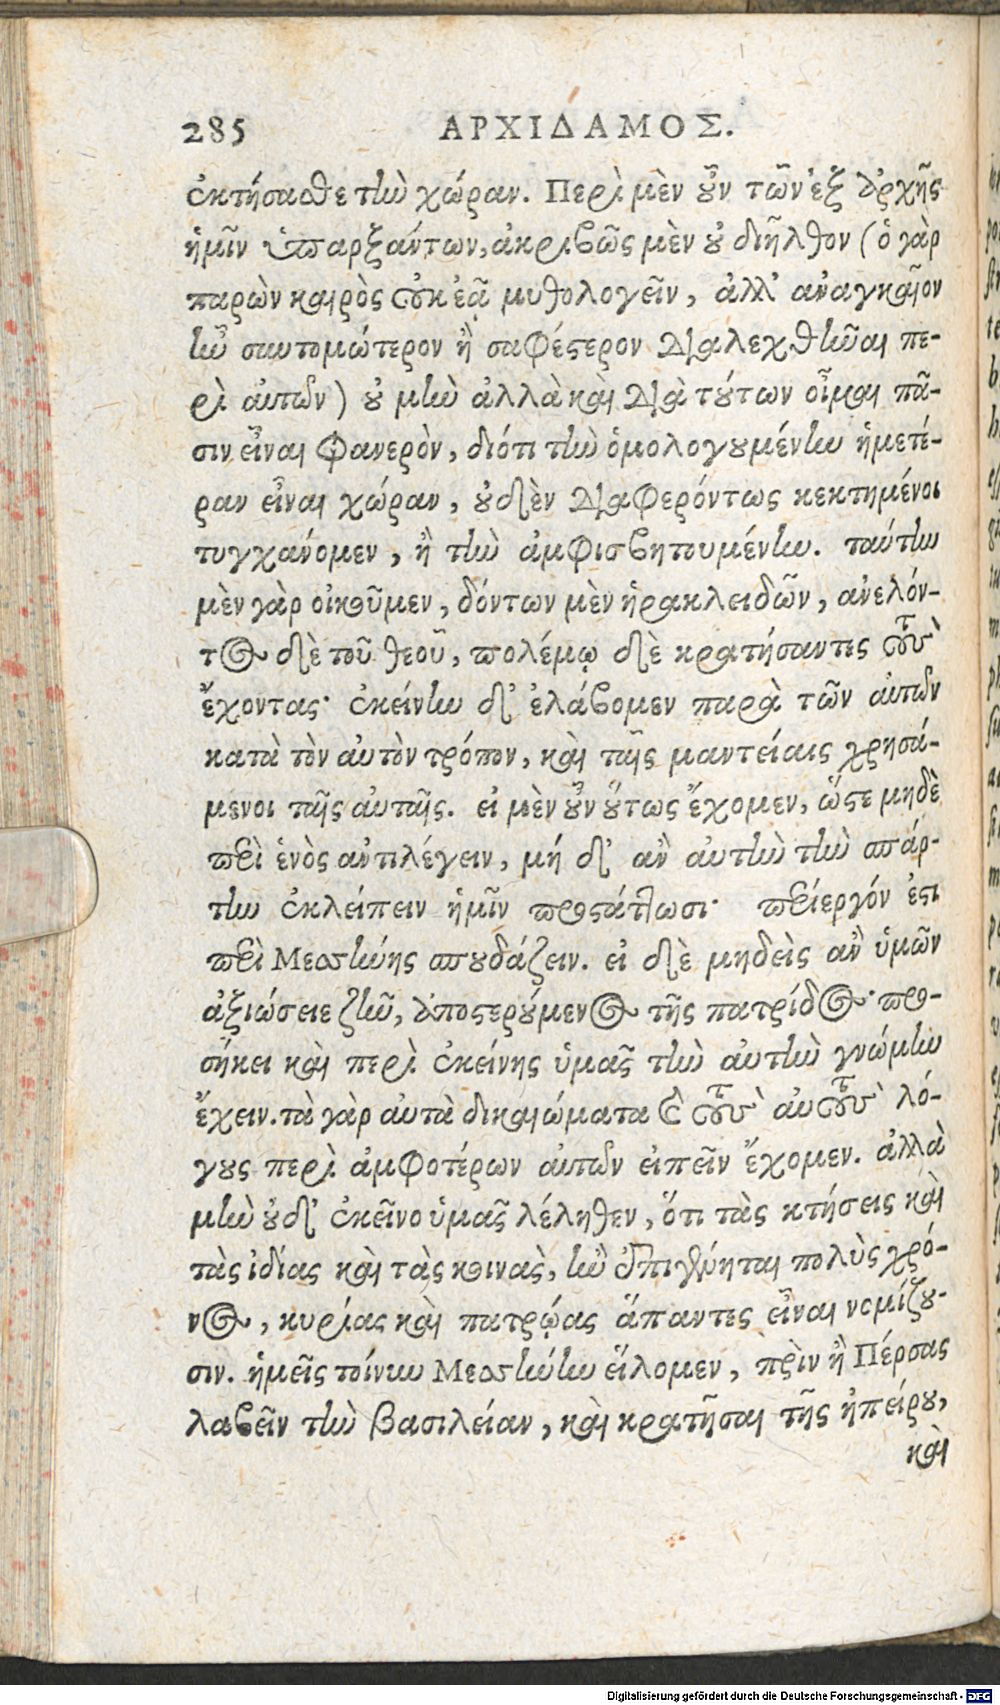 285 ΑΡΧΙΔΑΜΟΣ.
ἐκτήσασθε τὴν χώραν. Περὶ μὲν οὖν τῶν ἐξ ἀρχῆς
ἡμῖν ὑπαρξάντων, ἀκριβῶς μὲν οὐ διῆλθον (ὁ γὰρ
παρὼν καιρὸς οὐκ ἐᾷ μυθολογεῖν, ἀλλ' ἀναγκαῖον
ἦν συντομώτερον ἢ σαφέστερον διαλεχθῆναι πε-
ρὶ αὐτῶν) οὐ μὴν ἀλλὰ καὶ διὰ τούτων οἶμαι πᾶ-
σιν εἶναι φανερὸν, διότι τὴν ὁμολογουμένην ἡμετέ-
ραν εἶναι χώραν, οὐδὲν διαφερόντως κεκτημένοι
τυγχάνομεν, ἢ τὴν ἀμφισβητουμένην. ταύτην
μὲν γὰρ οἰκοῦμεν, δόντων μὲν ἡρακλειδῶν, ἀνελόν-
τος δὲ τοῦ θεοῦ, πολέμῳ δὲ κρατήσαντες τοὺς
ἔχοντας· ἐκείνην δ' ἐλάβομεν παρὰ τῶν αὐτῶν
κατὰ τὸν αὐτὸν τρόπον, καὶ ταῖς μαντείαις χρησά-
μενοι ταῖς αὐταῖς. εἰ μὲν οὖν οὕτως ἔχομεν, ὥστε μηδὲ
περὶ ἑνὸς ἀντιλέγειν, μή δ' ἂν αὐτὴν τὴν σπάρ-
την ἐκλείπειν ἡμῖν προστάττωσι· περίεργόν ἐστι
περὶ Μεσσήνης σπουδάζειν. εἰ δὲ μηδεὶς ἂν ὑμῶν
ἀξιώσειε ζῆν, ἀποστερούμενος τῆς πατρίδος· προ-
σήκει καὶ περὶ ἐκείνης ὑμᾶς τὴν αὐτὴν γνώμην
ἔχειν. τὰ γὰρ αὐτὰ δικαιώματα καὶ τοὺς αὐτοὺς λό-
γους περὶ ἀμφοτέρων αὐτῶν εἰπεῖν ἔχομεν. ἀλλὰ
μὴν οὐδ' ἐκεῖνο ὑμᾶς λέληθεν, ὅτι τὰς κτήσεις καὶ
τὰς ἰδίας καὶ τὰς κοινὰς, ἢν ἐπιγένηται πολὺς χρό-
νος, κυρίας καὶ πατρῴας ἅπαντες εἶναι νομίζου-
σιν. ἡμεῖς τοίνυν Μεσσήνην εἵλομεν, πρὶν ἢ Πέρσας
λαβεῖν τὴν βασιλείαν, καὶ κρατῆσαι τῆς ἠπείρου,
καὶ
Digitalisierung gefördert durch die Deutsche Forschungsgemeinschaft - DFG